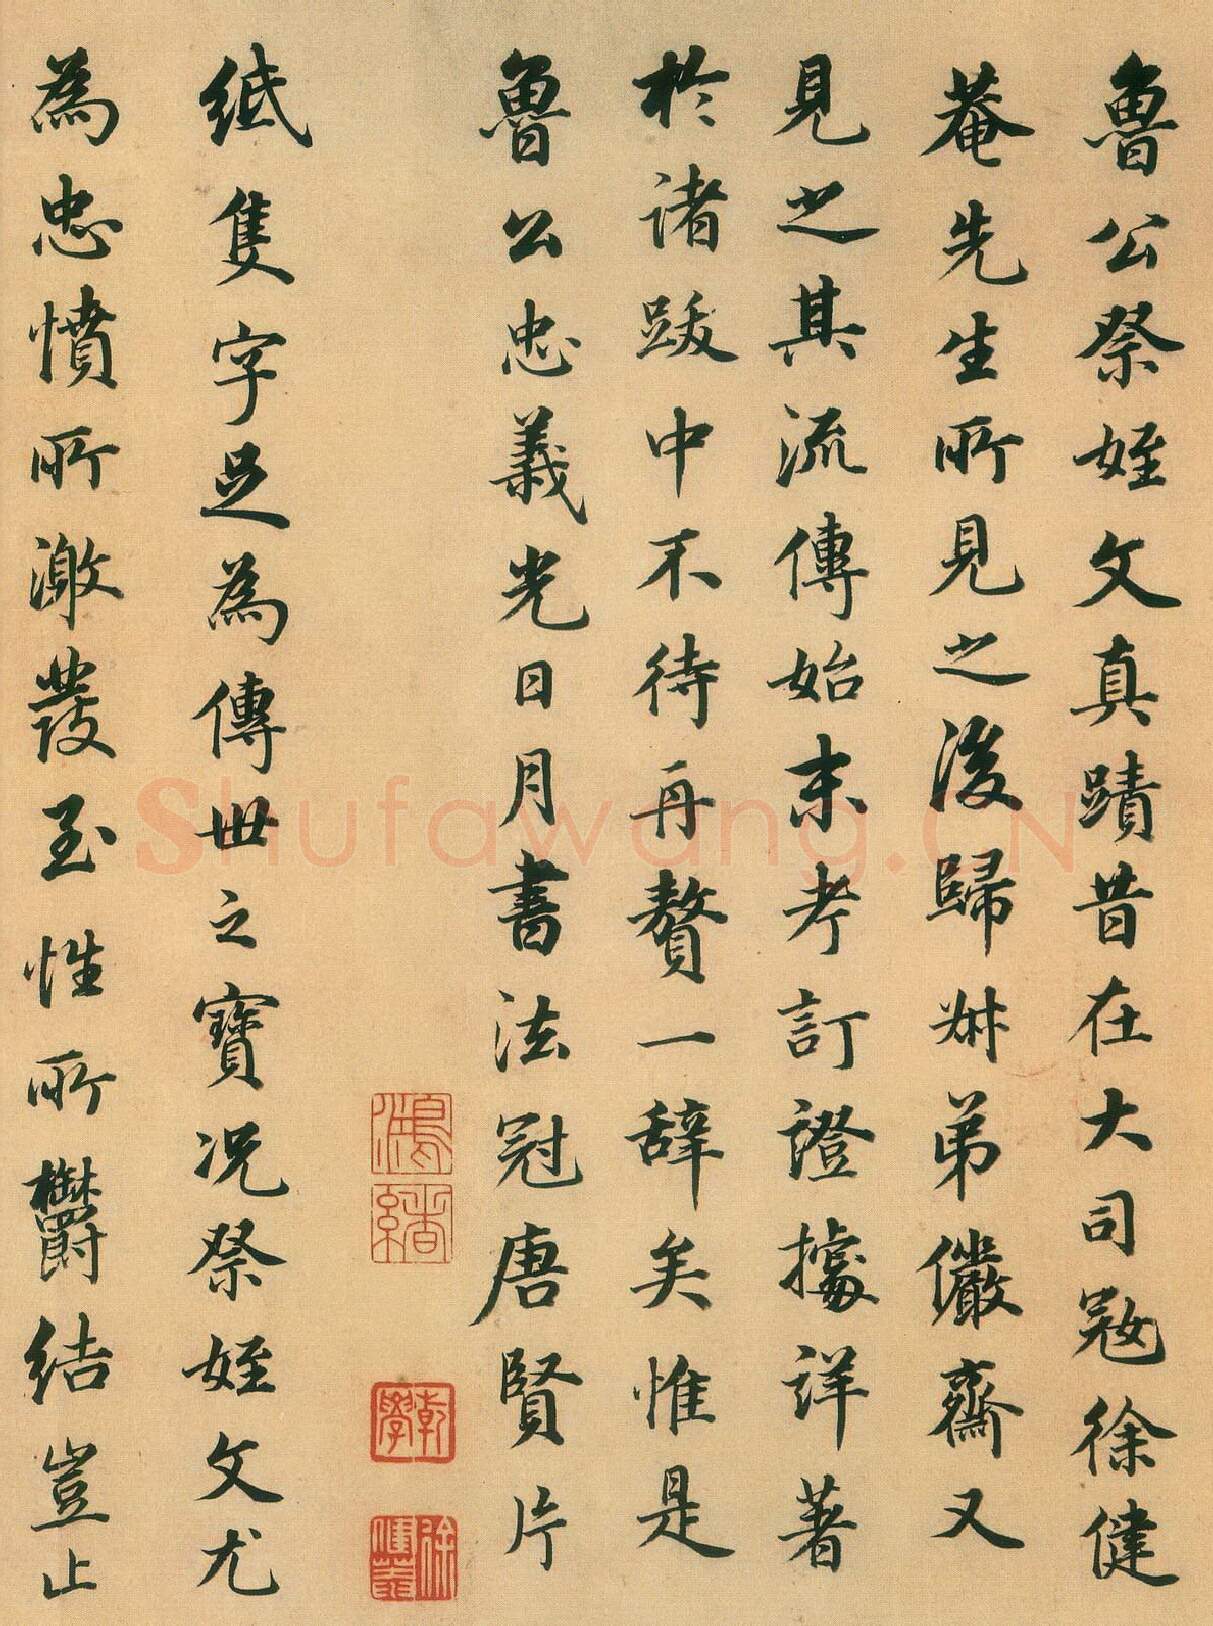 魯公祭姪文真蹟昔在大司寇徐健
菴先生所見之後歸淋弟儼齋又
見之其流傳始末考訂證據詳著
於諸跋中不待再贅一辭矣惟是
魯公忠義光日月書法冠唐賢片
紙隻字足為傳世之寶況祭姪文尤
為忠憤所激發至性所鬱結豈止
鴻緒
乾學
徐健菴
Shufawang.CN